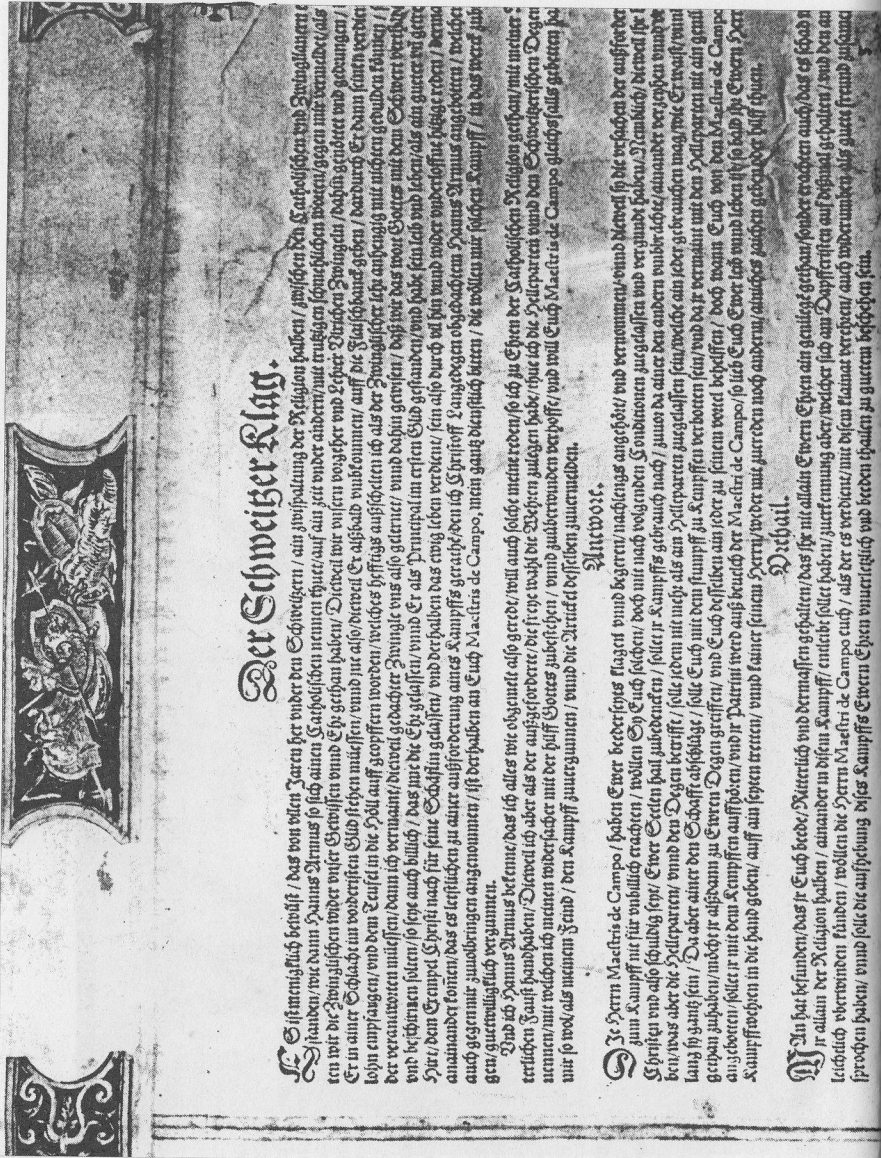 Der Schweitzer Klag.
ES ist menigklich bewüst / das von vilen Jaren her vnder den Schweitzern / ain zwispaltung der Religion halben / zwischen den Catholischen vnd Zwinglianern
standen / wie dann Hanns Armus so sich ainen Catholischen nennen thuet / auf ain zeit vnder andern / mit trutzigen schmechlichen worten / gegen mir vermeldet / als
ten wir die Zwinglischen wider vnser Gewissen vnnd Ehr gethan haben / Dieweil wir vnsern vorgeher vnd Lehrer Vlrichen Zwingeln / dahin genöttet vnd gedrungen /
Er in ainer Schlacht im vordersten Glid stehen müessen / vnnd jne also / dieweil Er alßbald vmbkommen / auff die Flaischbanck geben / dardurch Er dann seinen verdien
lohn empfangen / vnd dem Teufel in die Höll auff geopffern worden / welches hefftigs außschelten ich als der Zwinglischer Lehr anhengig mit nichten gedulden künnen /
der verantworten müessen / dann ich vermaint / dieweil gedachter Zwingle vns also gelernet / vnnd dahin gewisen / daß wir das wort Gottes mit dem Schwert verthäd
vnd beschirmen solten / so seye auch billich / das jme die Ehr gelassen / vnnd Er als Principal im ersten Glid gestanden / vnd habe sein leib vnd leben / als ain guetter
Hirt / dem Exempel Christi nach für seine Schäfflin gelassen / vnd derhalben das ewig leben verdient / sein also durch vil hin vnnd wider vnderloffne hitzige reden / derma
anainander komen / das es letstlichen zu ainer außforderung aines Kampffs gerathe / den ich Christoff Langedegen obgedachtem Hanns Armus angebotten / welcher
auch gegen mir zuuolbringen angenommen / ist derhalben an Euch Maestris de Campo, mein gantz dienstlich bitten / die wöllen mir solchen Kampff / in das werck zub
gen / guetwilligklich vergunnen.
Vnd ich Hanns Armus bekenne / das ich alles wie obgemelt also geredt / will auch solche meine reden / so ich zu Ehren der Catholischen Religion gethan / mit meiner
terlichen Faust handhaben / Dieweil ich aber als der außgeforderte / die freye wahl die Wehren zulegen habe / thue ich die Helleparten vnnd den Schweitzerischen Degen
nennen / mit welchen ich meinen widersacher mit der hülff Gottes zubestehen / vnnd zuüberwunden verhoffe / vnd will Euch Maestris de Campo gleichsfalls gebetten ha
mir so wol / als meinem Feind / den Kampff zuuergunnen / vnnd die Articel desselben zuuermelden.
Antwort.
DIe Herrn Maestris de Campo / haben Ewer bederseyts klagen vnnd begeren / nachlengs angehört / vnd vernommen / vnnd dieweil sy die vrsachen der außforder
zum Kampff nit für vnbillich erachten / wöllen Sy Euch solchen / doch mit nach volgenden Conditionen zuegelassen vnd vergundt haben / Nemblich / dieweil jhr
Christen vnd also schuldig seyt / Ewer Seelen hail zubedencken / sollet jr Kampffs gebrauch nach / zuuo da ainer den andern vmbbrächte / ainander verzeyhen vnnd
ben / was aber die Helleparten / vnnd den Degen betrifft / solle jedem nit mehr als ain Helleparten zuegelassen sein / welche ain jeder gebrauchen mag / wie Er waist / vnnd
lang sy gantz sein / Da aber ainer den Schafft abschlüge / solle Euch mit dem stumpff zu Kempffen verbotten sein / vnd da jr vermaint mit den Helleparten nit ain genüe
gethan zuhaben / möcht jr alßdann zu Ewren Degen greiffen / vnd Euch desselben ain jeder zu seinem vortel behelffen / doch wann Euch von den Maestris de Campo
angebotten / sollet jr mit dem Kempffen auffhören / vnd jr Patrini werd auß beuelch der Maestri de Campo / so lieb Euch Ewer leib vnnd leben ist / so bald jhr Ewern Herr
Kampffwehren in die hand geben / auff ain seyten tretten / vnnd kainer seinem Herrn / weder mit zurreden noch andern / ainiches zaichen geben oder hilff thuen.
Vrthail.
MAn hat befunden / das jr Euch beede / Ritterlich vnd dermassen gehalten / das jhr nit allain Ewern Ehren ain genüegt gethan / sonder erachten auch / das es schad
jr allain der Religion halben / ainander in disem Kampff / entleibt sollet haben / zuerkennung aber / welcher sich am Dapfferisten auf dißmal gehalten / vnd den an
leichtlich vberwinden künden / wöllen die Herrn Maestri de Campo euch / als der es verdient / mit disem klainat verehren / auch widerumben als guete freund zusame
sprochen haben / vnnd solle die aufhebung dises Kampffs Ewern Ehren vnuerletzlich vnd beeden thailen zu guetem beschehen sein.